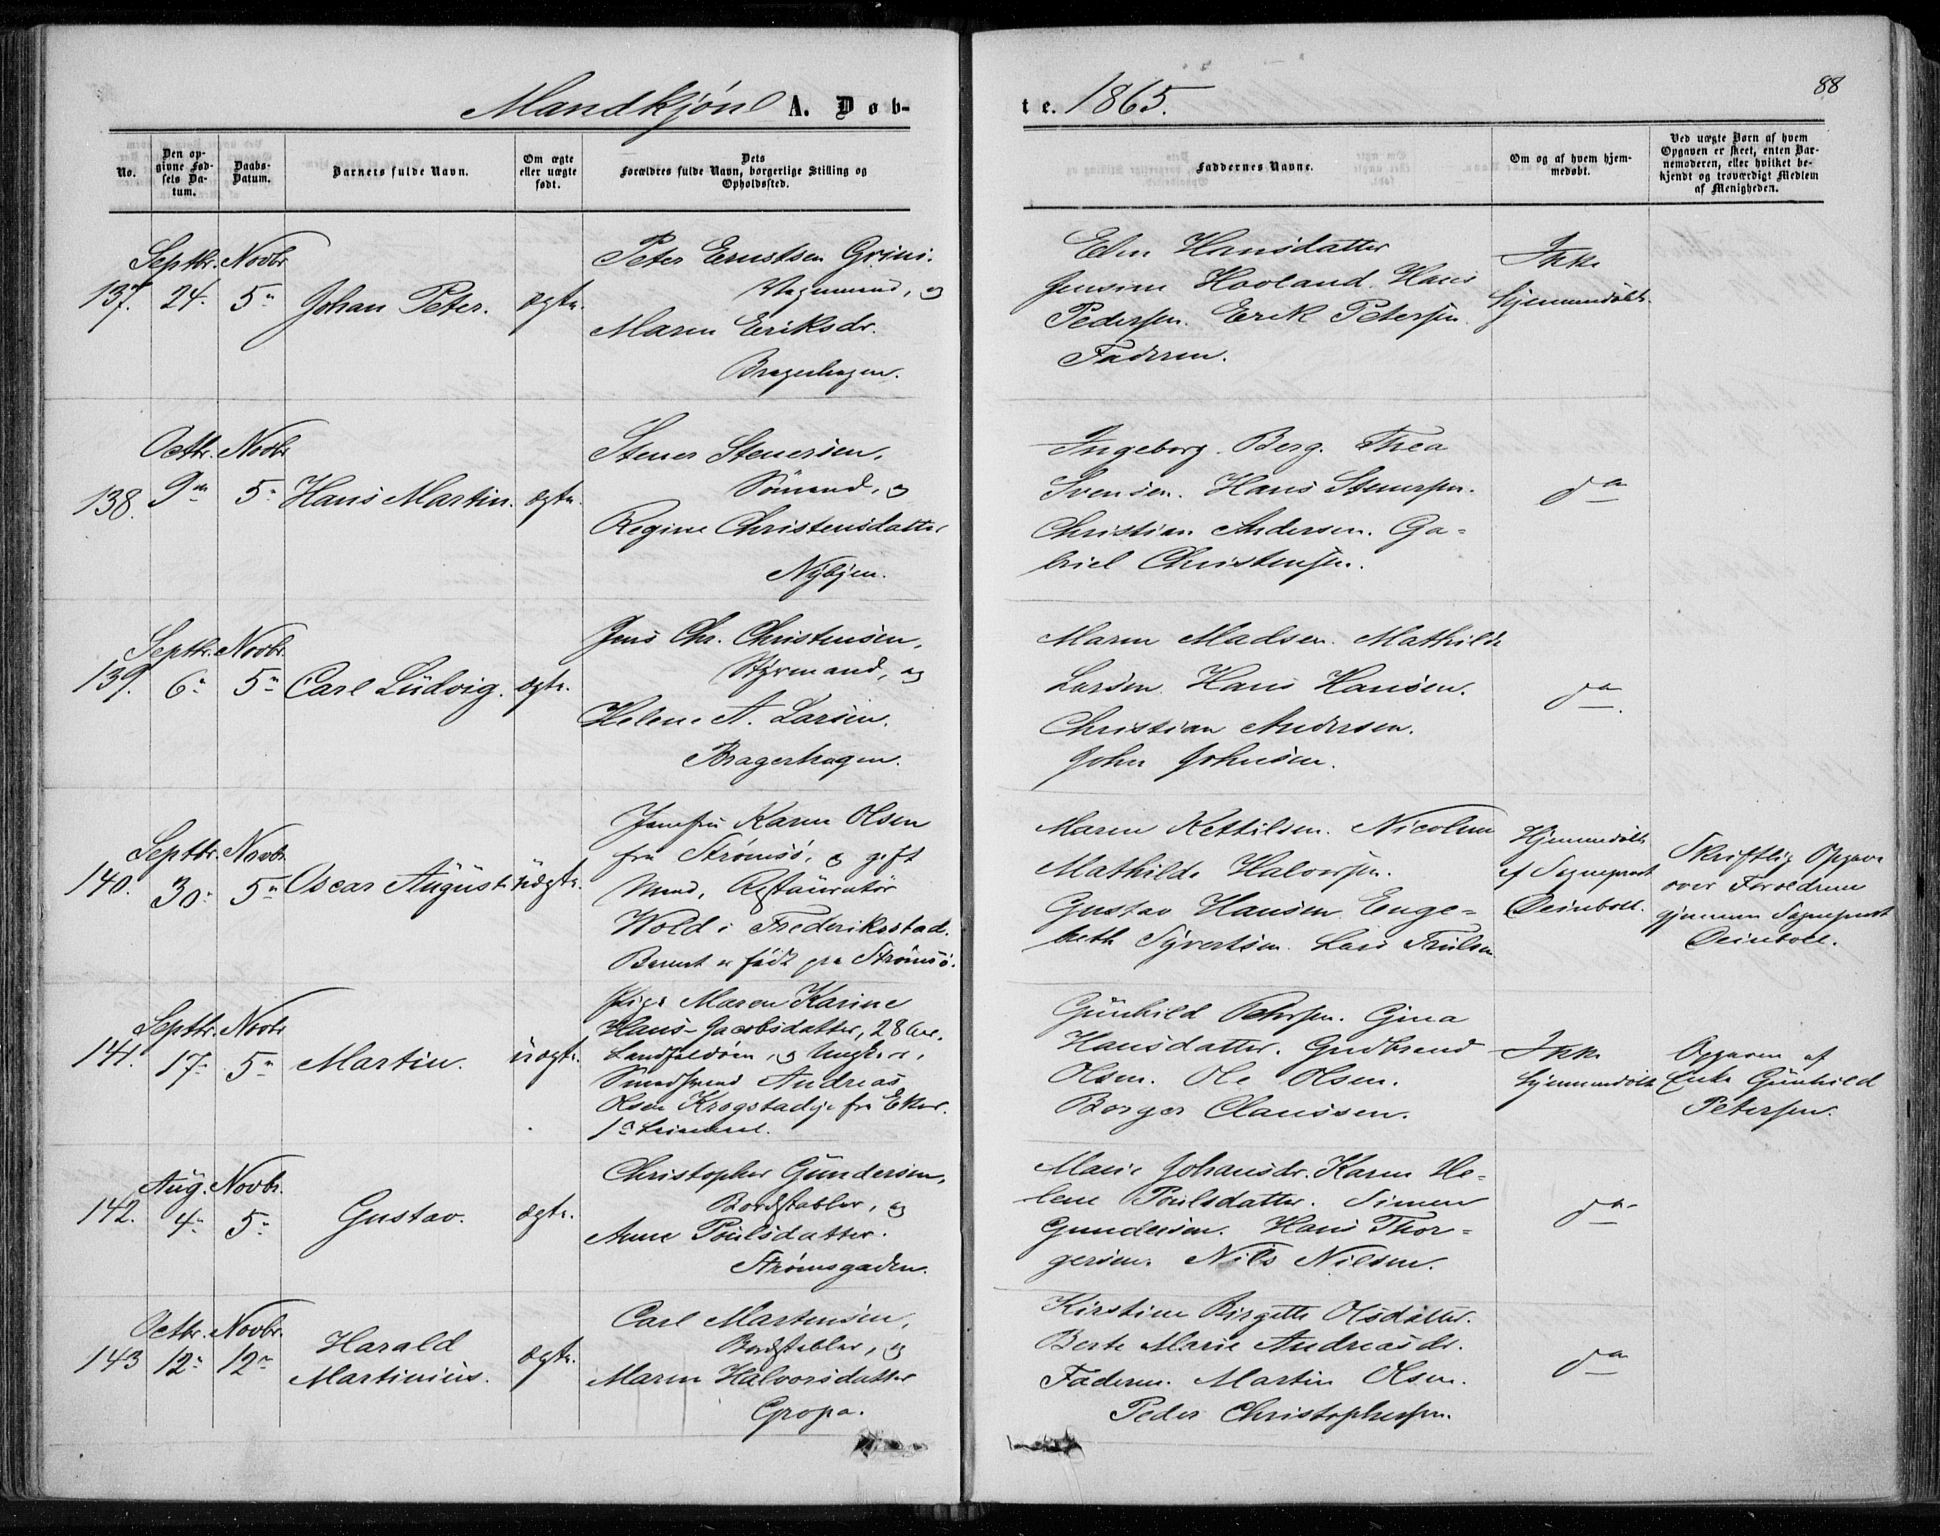 Mandkjøn A. Døb-
te. 1865.
88
No.
Den op-
givne Fød-
sels Da-
tum.
Daabs-
Datum.
Barnets fulde Navn.
Om ægte
eller uægte
født.
Dets
Forældres fulde Navn, borgerlige Stilling og
Opholdssted.
Faddernes Navne.
Om og af hvem hjem-
medøbt.
Ved uægte Børn af hvem
Opgaven er skeet, enten Bar-
nemoderen, eller hvilket be-
kjendt og troværdigt Medlem
af Menigheden.
137. Septbr. 24. Novbr. 5. Johan Peter. ægte.
Peter Erntsen Grini.
og
Maren Eriksdr.
Bragerhagen.
Hansdatter
Jensine Hovland. Hans
Pedersen. Erik Petersen
Faderen.
Ikke
hjemmedøbt.
138. Octbr. 9de Novbr. 5. Hans Martin. ægte.
Stener Stenersen,
Sømand, og
Regine Christensdatter
Nybyen.
Ingeborg Berg. Thea
Svensen. Hans Stenersen.
Christian Andersen. Ga-
briel Christensen.
do
139. Septbr. 6 Novbr. 5 Carl Ludvig. ægte.
Jens Chr. Christensen,
Styrmand, og
Helene A. Larsen.
Bragerhagen.
Maren Madsen. Mathilde
Larsen. Hans Hansen.
Christian Andersen.
John Johnsen.
do
140. Septbr. 30 Novbr. 5 Oscar August uægte.
Jomfru Karen Olsen
fra Strømsø, og gift
Mand, Restauratør
Wold i Frederiksstad.
Barnet er født paa Strømsø.
Maren Kettilsen. Nicoline
Mathilde Halvorsen.
Gustav Hansen. Enge-
breth Syvertsen. Lars
Hjemmedøbt
af Sogneprest
Deinboll.
Skriftlig Opgave
over Forældrene
gjennem Sogneprest
Deinboll.
141. Septbr. 17 Novbr. 5 Martin. uægte.
Pige Maren Karine
Hans-Jacobsdatter, 28 Aar.
Landfaldøen, og Ungkarl,
Andreas
Olsen Krogstadeje fra Eker.
1ste Leiermaal.
Gunhild Petersen. Gina
Hansdatter. Gudbrand
Olsen. Ole Olsen.
Borger Claussen.
Ikke
hjemmedøbt
Opgaven af
Enke Gunhild
Petersen.
142. Aug. 4 Novbr. 5 Gustav. ægte.
Christopher Gundersen,
Bordstabler, og
Anne Poulsdatter.
Strømsgaden.
Marie Johansdr. Karen He-
lene Poulsdatter. Simen
Gundersen. Hans Thor-
gersen. Nils Nilsen.
do
143 Octbr. 12 Novbr. 12 Harald
Martinius. ægte.
Carl Martensen,
Bordstabler, og
Maren Halvorsdatter
Gropa.
Kirstine Birgitte Olsdatter.
Berte Marie Andreasdr.
Faderen. Martin Olsen.
Peder Christophersen.
do